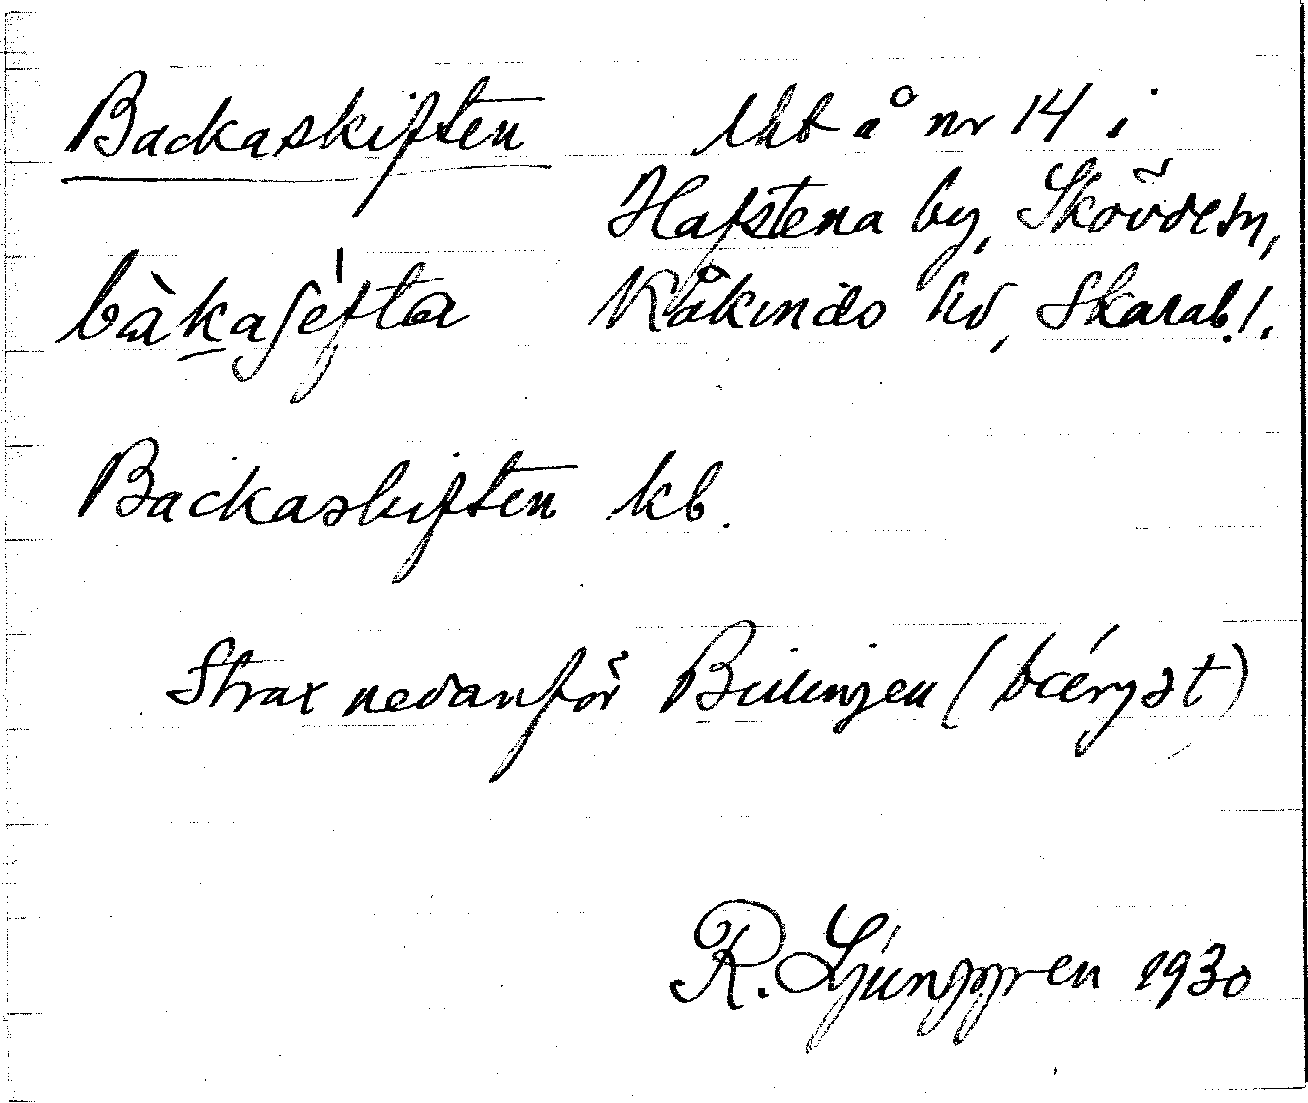 Backaskiften
lhb å nr 14 i
Hafstena by, Skövde sn,
Kåkinds hd, Skarab. l.
bàkaʃéfta
Backaskiften kb.
Strax nedanför Billingen (bærgət)
R. Ljunggren 1930